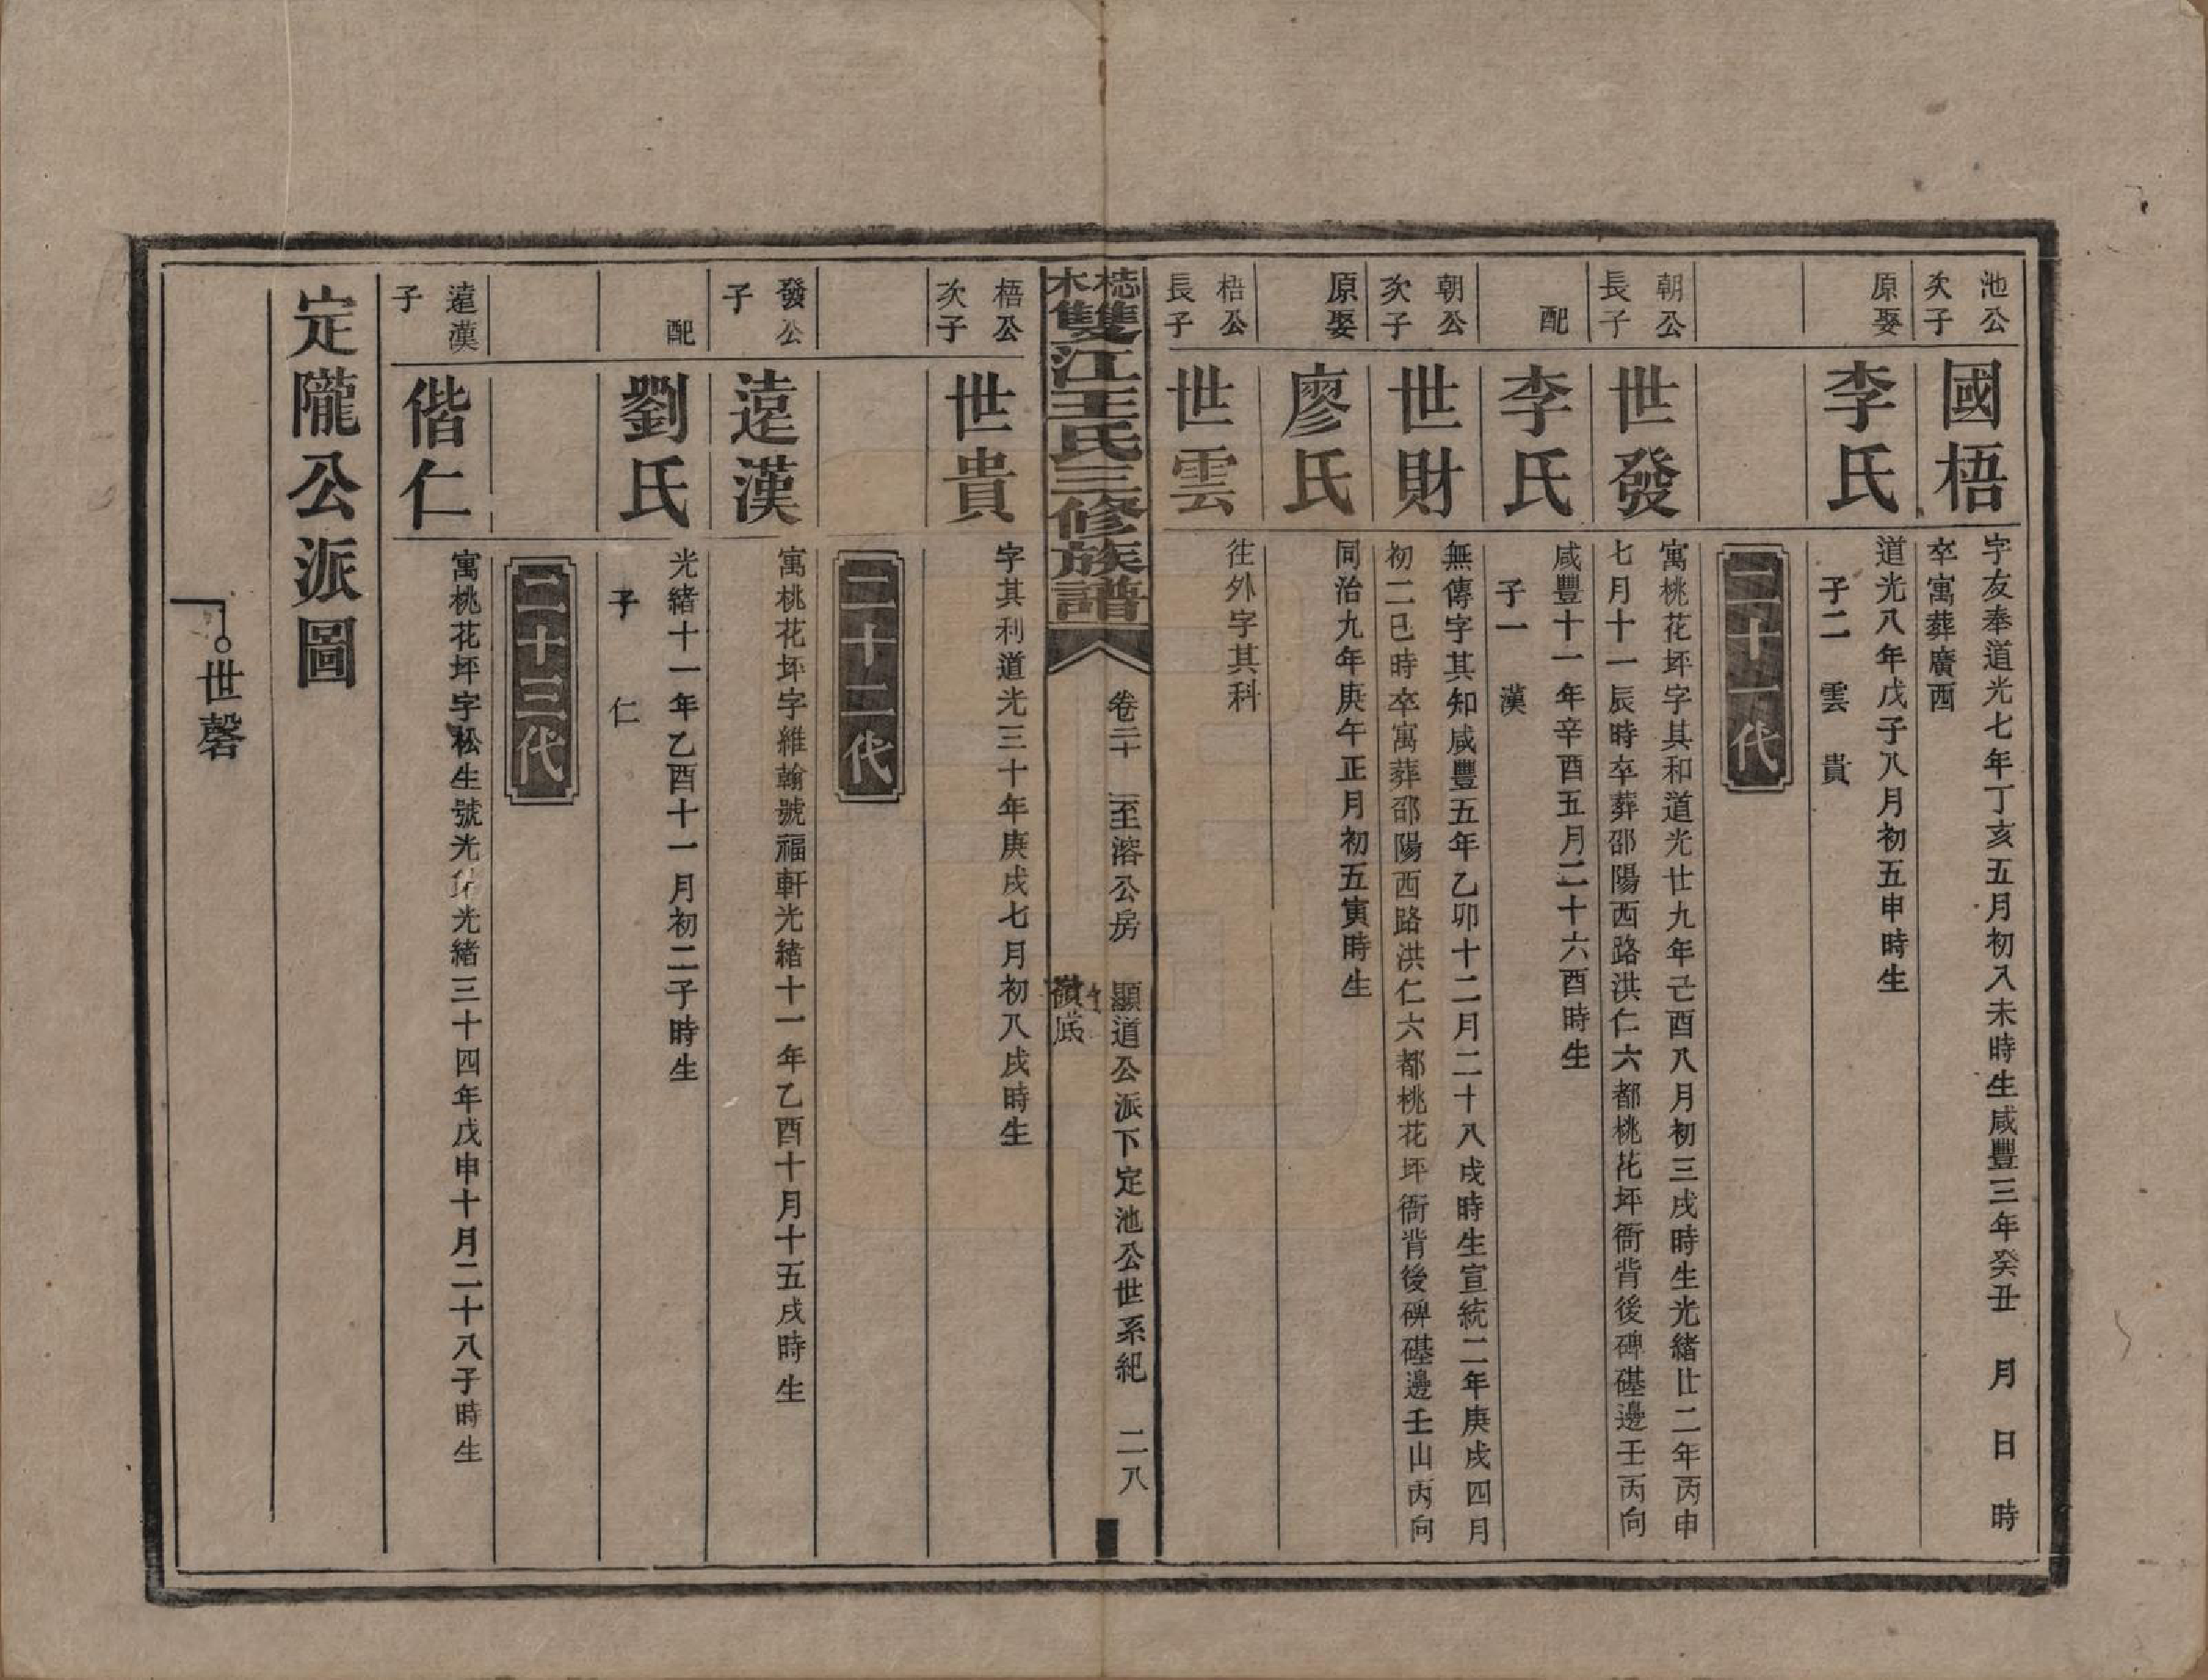 池公
次子
國梧
字友奉道光七年丁亥五月初八未時生咸豐三年癸丑 月 日 時
卒寓葬廣西
原娶
李氏
道光八年戊子八月初五申時生
子二 雲 貴
二十一代
朝公
長子
世發
寓桃花坪字其和道光廿九年己酉八月初三戌時生光緒廿二年丙申
七月十一辰時卒葬邵陽西路洪仁六都桃花坪衙背後碑礎邊壬丙向
配
李氏
咸豐十一年辛酉五月二十六酉時生
子一 漢
朝公
次子
世財
無傳字其知咸豐五年乙卯十二月二十八戌時生宣統二年庚戌四月
初二巳時卒寓葬邵陽西路洪仁六都桃花坪衙背後碑礎邊壬山丙向
原娶
廖氏
同治九年庚午正月初五寅時生
梧公
長子
世雲
往外字其科
梽木雙江王氏三修族譜
卷二十 至溶公房 顯道公派下定池公世系紀 二八
嶺底
梧公
次子
世貴
字其利道光三十年庚戌七月初八戌時生
二十二代
發公
子
遠漢
寓桃花坪字維翰號福軒光緒十一年乙酉十月十五戌時生
配
劉氏
光緒十一年乙酉十一月初二子時生
子 仁
二十三代
遠漢
子
偕仁
寓桃花坪字松生號光光緒三十四年戊申十月二十八子時生
定隴公派圖
世磬